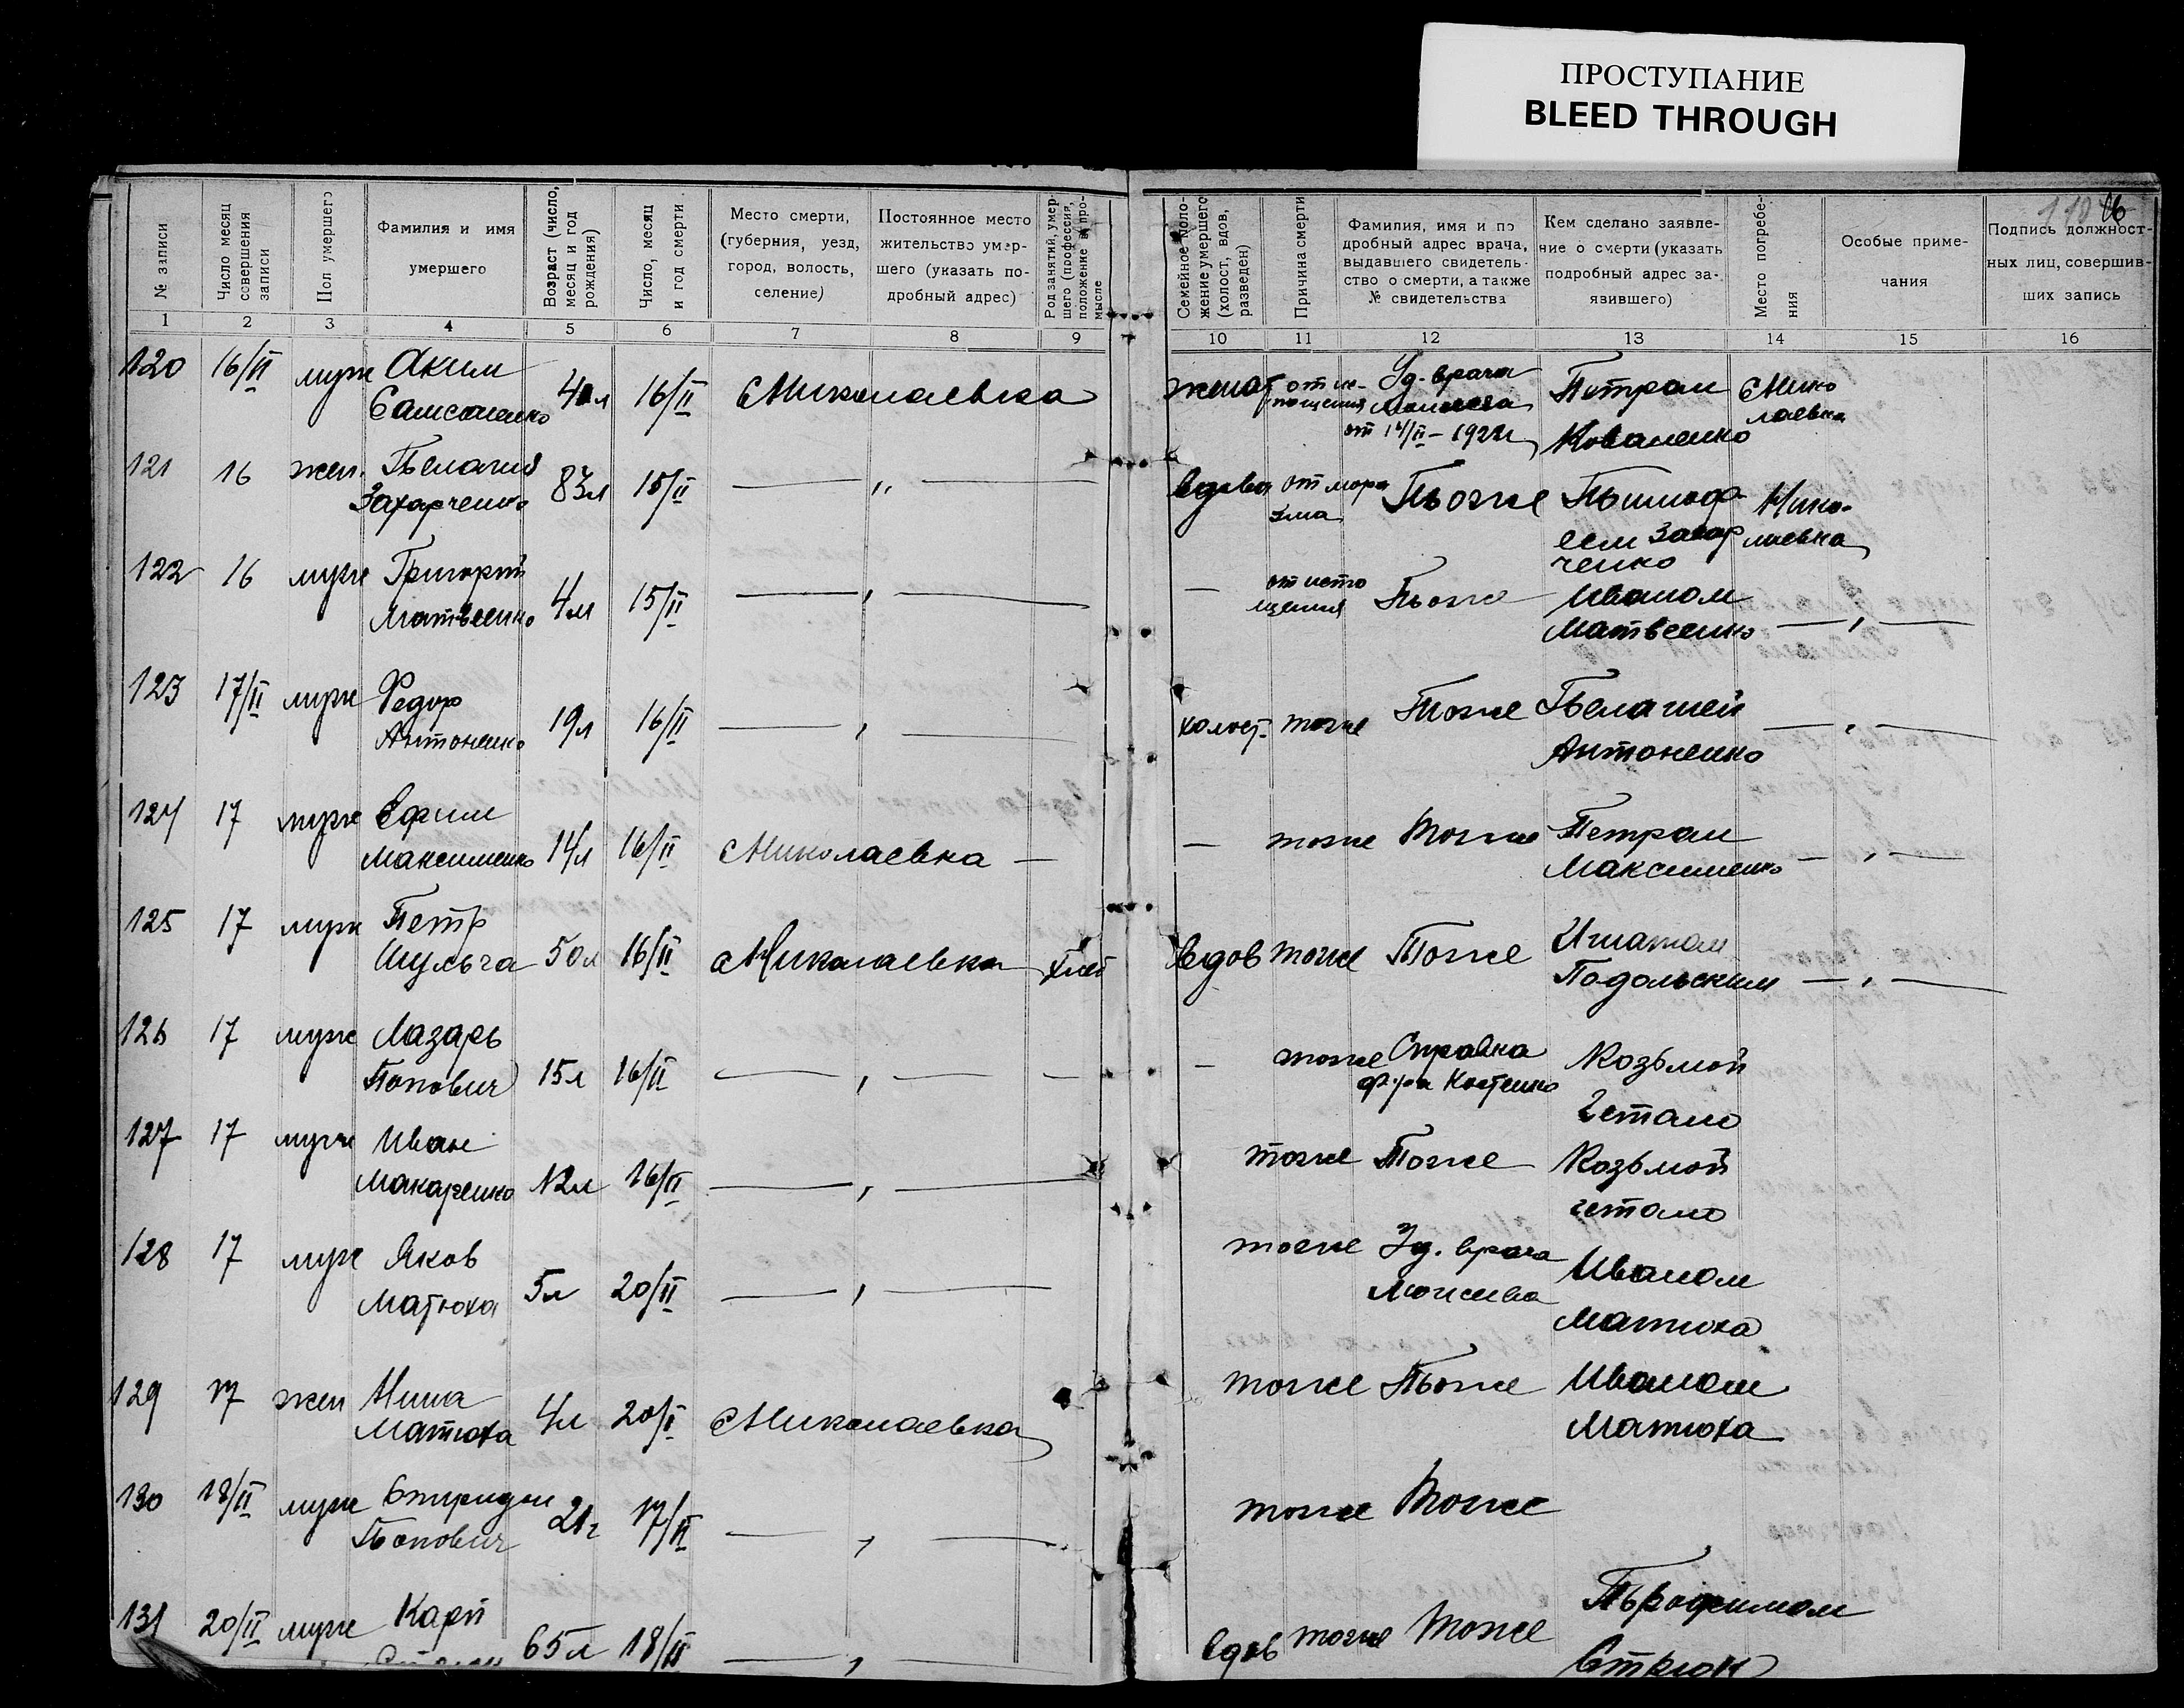 ПРОСТУПАНИЕ
BLEED THROUGH
№ записи
Число месяц совершения записи
Пол умершего
Фамилия и имя умершего
Возраст (число, месяц и год рождения)
Число, месяц и год смерти
Место смерти, (губерния, уезд, город, волость, селение)
Постоянное место жительство умершего (указать подробный адрес)
Род занятий, умершего (профессия, положение в промысле
Семейное положение умершего (холост, вдов, разведен)
Причина смерти
Фамилия, имя и подробный адрес врача, выдавшего свидетельство о смерти, а также № свидетельства
Кем сделано заявление о смерти (указать подробный адрес заявившего)
Место погребения
Особые примечания
Подпись должностных лиц, совершивших запись
1 2 3 4 5 6 7 8 9 10 11 12 13 14 15 16
120 16/II муж Аким Самсоненко 16/II с Николаевка женат от истощения Уд. врача от 14/II – 1922г Петром Коваленко с Николаевка
121 16 жен. Пелагия Захарченко 83л 15/II — „ — вдова от маразма Тоже Тимофеем Захарченко Николаевка
122 16 муж Григорий Матвеенко 4л 15/II — „ — — от истощения Тоже Иваном Матвеенко — „ —
123 17/II муж Федор Антоненко 19л 16/II — „ — холост. тоже Тоже Пелагией Антоненко — „ —
124 17 муж Ефим Максименко 14л 16/II с Николаевка — — тоже Тоже Петром Максименко — „ —
125 17 муж Петр Шульга 50л 16/II с Николаевка хлеб вдов тоже Тоже Игнатом Подольским — „ —
126 17 муж Лазарь Попович 15л 16/II — „ — — — тоже Справка ф-ра Костенко Козьмой Гетало
127 17 муж Иван Макаренко 12л 16/II — „ — тоже Тоже Козьмой Гетало
128 17 муж Яков Матюха 5л 20/II — „ — тоже Уд. врача Моисеева Иваном Матюха
129 17 жен Нина Матюха 4л 20/II с Николаевка тоже Тоже Иваном Матюха
130 18/II муж Спиридон Попович 21г 17/II — „ — тоже Тоже
131 20/II муж Карп 65л 18/II — „ — вдов тоже Тоже Трофимом Стрюк